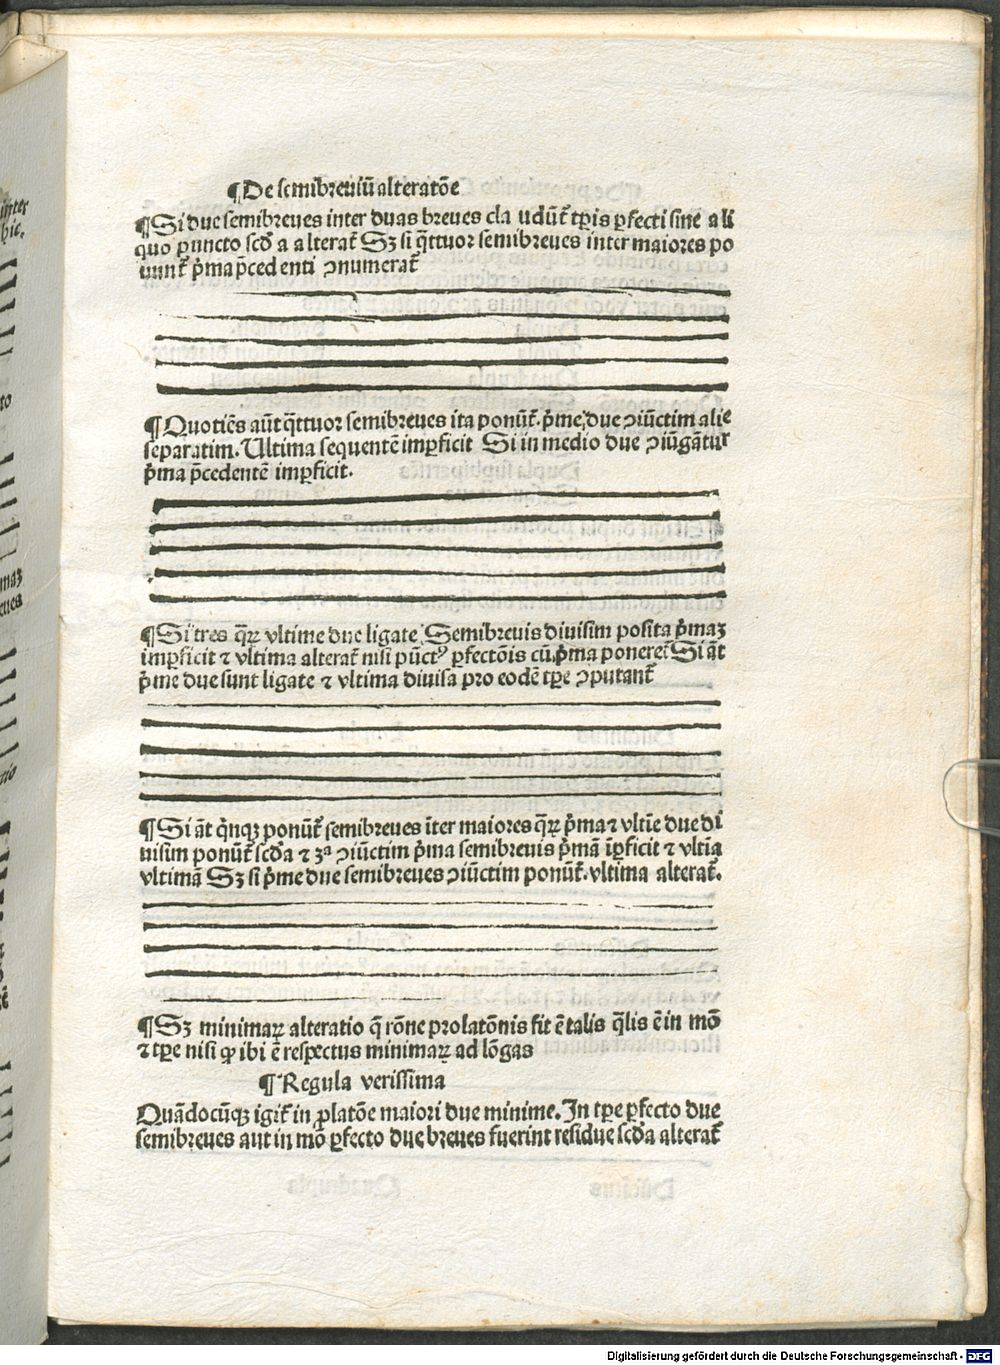 ¶De semibreuiũ alteratõe
¶Si due semibreues inter duas breues cla udũt᷑ tp̱is ꝑfecti sine ali
quo pũncto scd̃a alterat᷑ Sꝫ si q̃ttuor semibreues inter maiores po
nunt᷑ p̃ma p̃cedenti ꝯnumerat᷑
¶Quotiẽs aũt q̃ttuor semibreues ita ponũt᷑. p̃me due ꝯiũctim alie
separatim. Ultima sequentẽ imꝑficit Si in medio due ꝯiũgãtur
p̃ma p̃cedentẽ imꝑficit.
¶Si tres q̃rꝝ vltime due ligate Semibreuis diuisim posita p̃maꝫ
imꝑficit ⁊ vltima alterat᷑ nisi pũctꝰ ꝑfectõis cũ p̃ma poneret᷑ Si ãt
p̃me due sunt ligate ⁊ vltima diuisa pro eodẽ tp̱e ꝯputant᷑
¶Si ãt q̃nqꝫ ponũt᷑ semibreues ĩter maiores q̃rꝝ p̃ma ⁊ vltĩe due di
uisim ponũt᷑ scd̃a ⁊ 3ᵃ ꝯiũctim p̃ma semibreuis p̃mã ĩꝑficit ⁊ vltĩa
vltimã Sꝫ si p̃me due semibreues ꝯiũctim ponũt᷑. vltima alterat᷑.
¶Sꝫ minimaꝝ alteratio q̃ rõne prolatõnis fit ẽ talis q̃lis ẽ in mõ
⁊ tp̱e nisi ꝙ ibi ẽ respectus minimaꝝ ad lõgas
¶Regula verissima
Quãdocũqꝫ igit᷑ in ꝓlatõe maiori due minime. In tp̱e ꝑfecto due
semibreues aut in mõ ꝑfecto due breues fuerint residue scd̃a alterat᷑
Digitalisierung gefördert durch die Deutsche Forschungsgemeinschaft - DFG